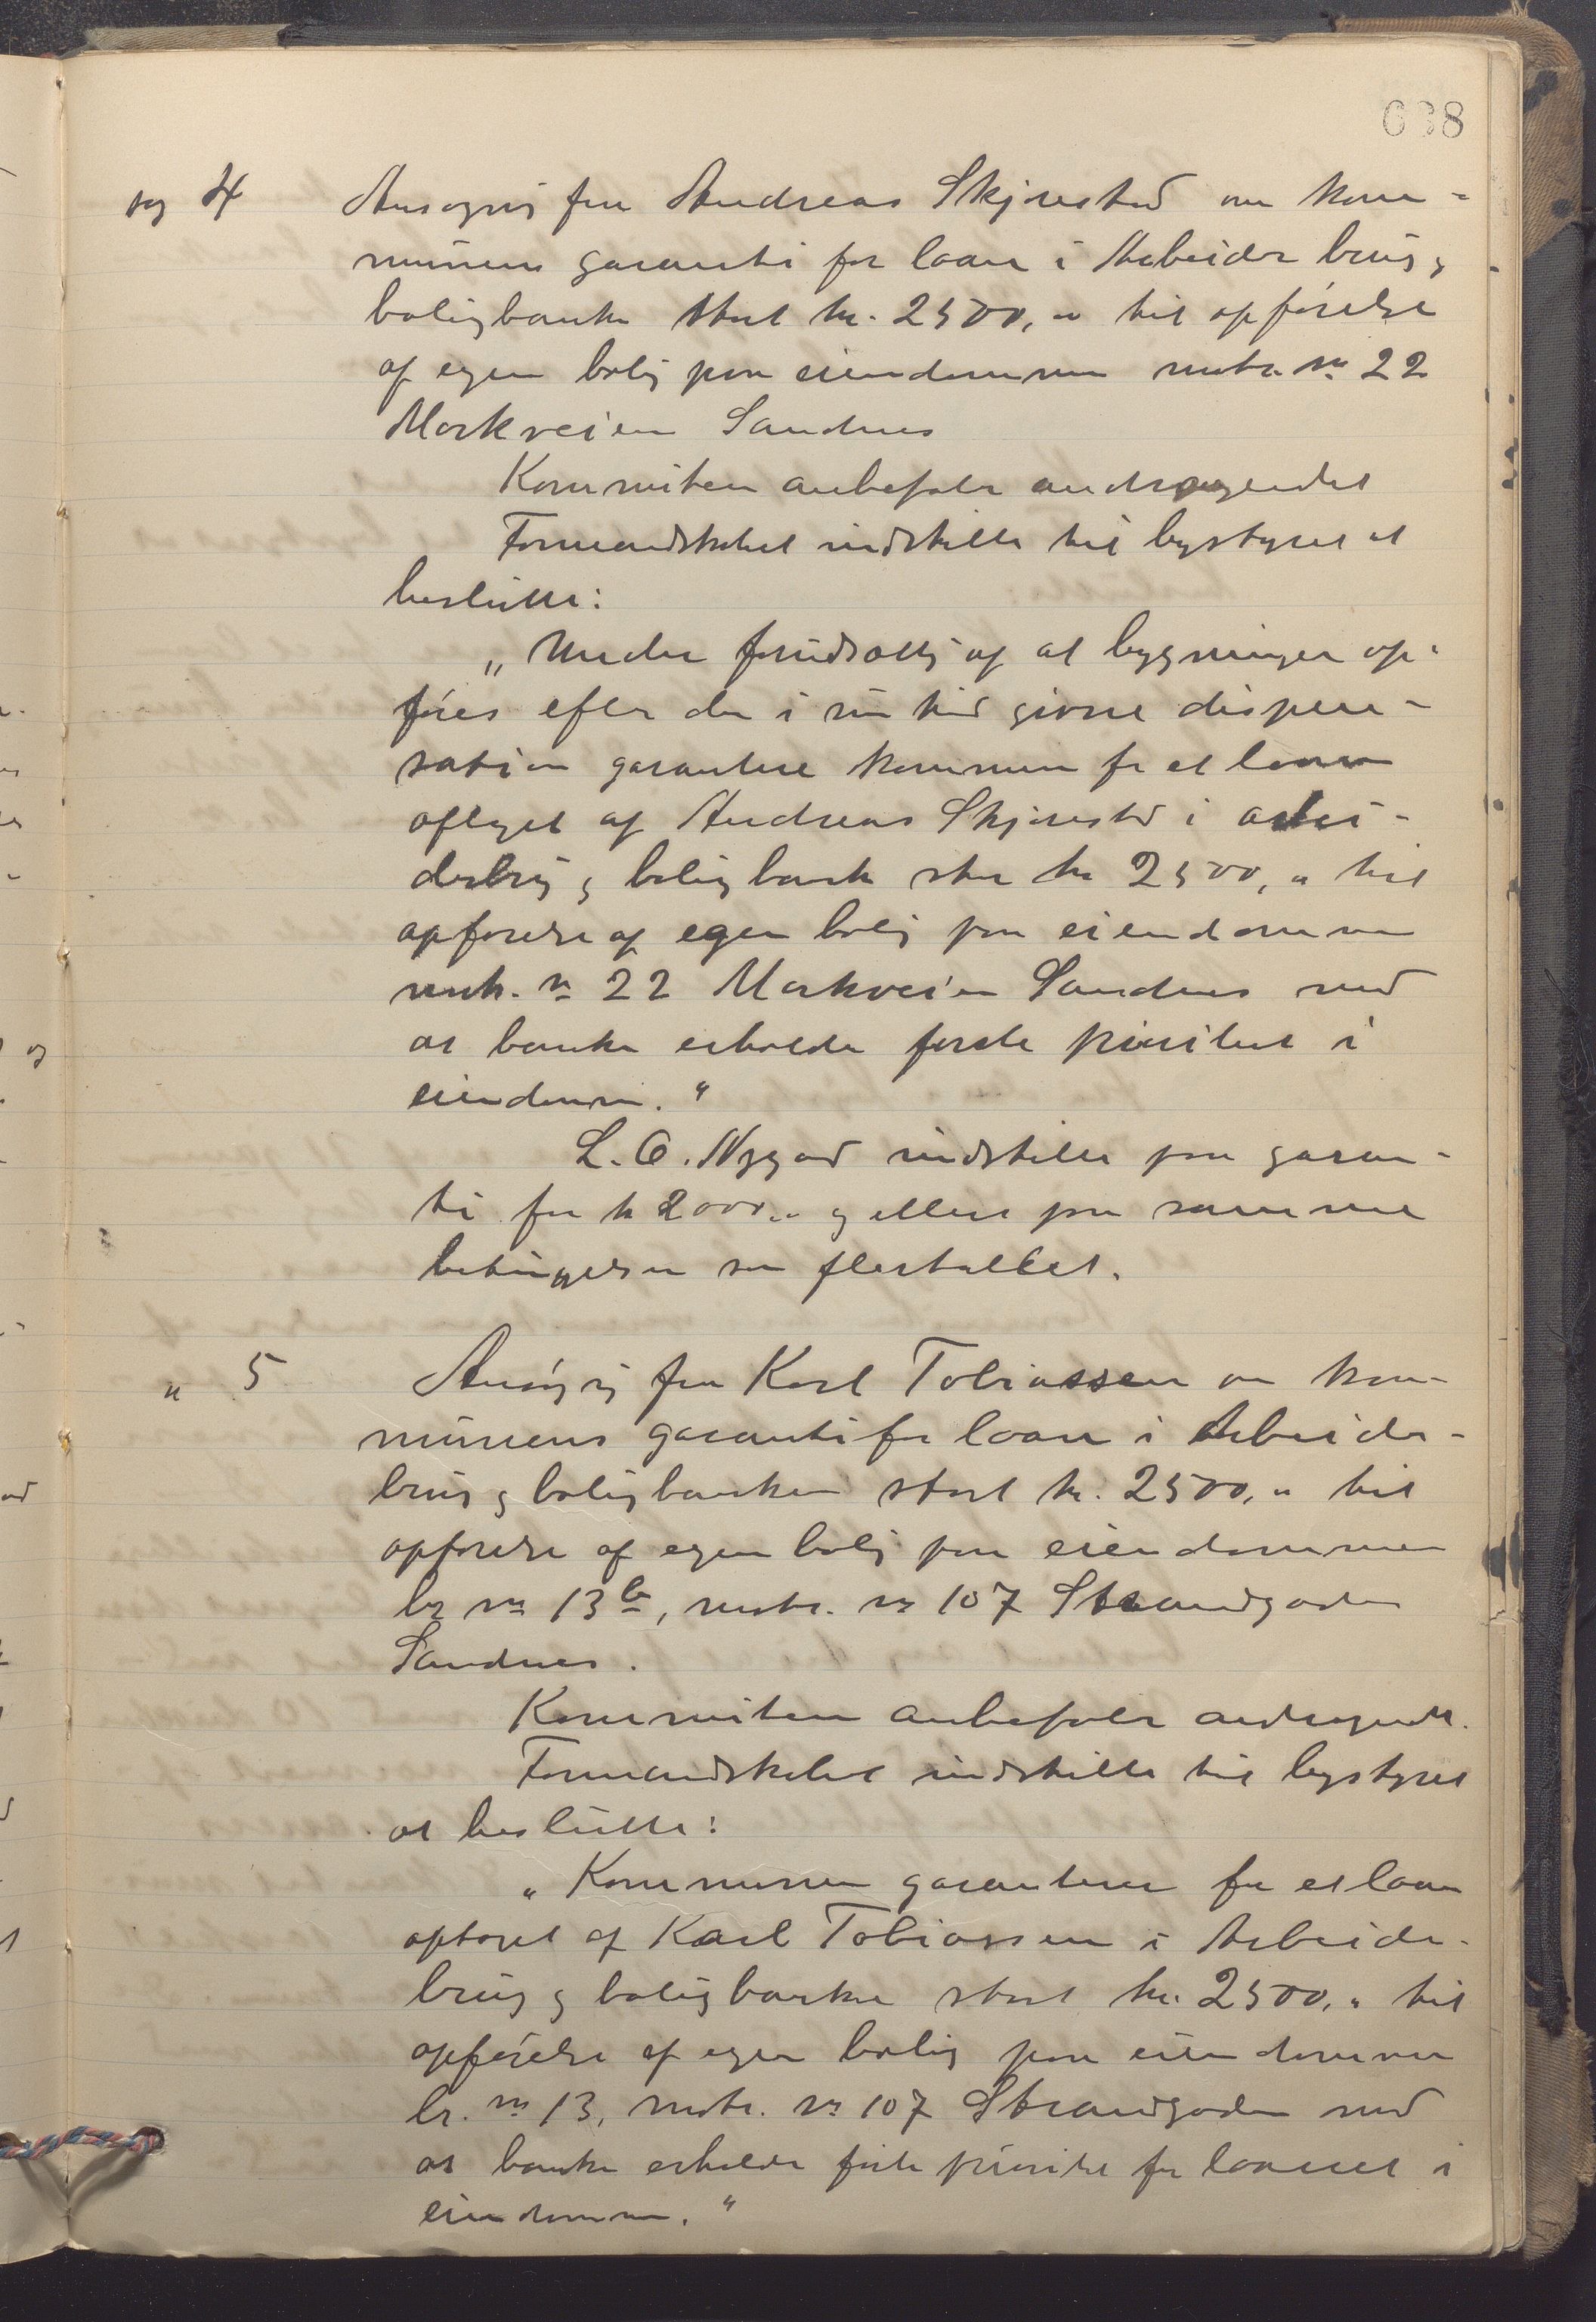 638
sag 4 Ansøgning fra Andreas Skjørestad om kom-
munens garanti for laan i Arbeider brug og
boligbanken stort kr. 2500,„ til opførelse
af egen bolig paa eiendommen matr. no 22
Morkveien Sandnes
Kommiteen anbefaler andragendet
Formandskabet indstiller til bystyret at
beslutte:
„Under forudsætning af at bygningen op-
føres efter den i sin tid givne dispen-
sation garanterer kommunen for et laan
optaget af Andreas Skjørestad i arbei-
derbrug og boligbank stor kr 2500,„ til
opførelse af egen bolig paa eiendommen
matr. no 22 Morkveien Sandnes mod
at banken erholder første prioritet i
eiendommen."
L. O. Nygaard indstiller paa garan-
ti for kr 2000„ og ellers paa samme
betingelser som flertallet.
„ 5 Ansøgning fra Karl Tobiassen om kom-
munens garanti for laan i Arbeider-
brug og boligbanken stort kr. 2500,„ til
opførelse af egen bolig paa eiendommen
br no 13b, matr. no 107 Strandgaden
Sandnes.
Kommiteen anbefaler andragendet.
Formandskabet indstiller til bystyret
at beslutte:
„Kommunen garanterer for et laan
optaget af Karl Tobiassen i Arbeider-
brug og boligbanken stort kr. 2500,„ til
opførelse af egen bolig paa eiendommen
br. no 13, matr. no 107 Strandgaden mod
at banken erholder første prioritet for laanet i
eiendommen."